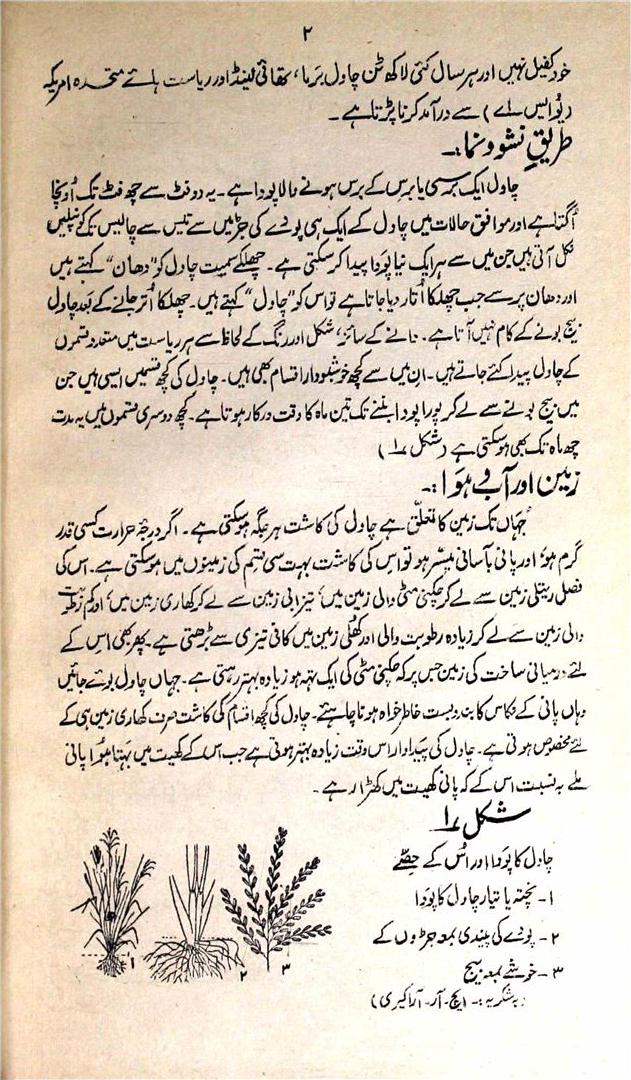 ۲
خود کفیل نہیں اور ہر سال کئی لاکھ ٹن چاول برما، تھائی لینڈ اور ریاست ہائے متحدہ امریکہ
(یو ایس اے) سے درآمد کرنا پڑتا ہے۔
طریقِ نشوونما:۔
چاول ایک برسی یا برس کے برس ہونے والا پودا ہے۔ یہ دو فٹ سے چھ فٹ تک اُونچا
اُگتا ہے اور موافق حالات میں چاول کے ایک ہی پودے کی جڑ میں سے تیس سے چالیس تک کونپلیں
نکل آتی ہیں جن میں سے ہر ایک نیا پودا پیدا کر سکتی ہے۔ چھلکے سمیت چاول کو "دھان" کہتے ہیں
اور دھان پر سے جب چھلکا اُتار دیا جاتا ہے تو اس کو "چاول" کہتے ہیں۔ چھلکا اُتر جانے کے بعد چاول
بیج بونے کے کام نہیں آتا ہے۔ دانے کے سائز، شکل اور رنگ کے لحاظ سے ہر ریاست میں متعدد قسموں
کے چاول پیدا کئے جاتے ہیں۔ ان میں سے کچھ خوشبودار اقسام بھی ہیں۔ چاول کی کچھ قسمیں ایسی ہیں جن
میں بیج بونے سے لے کر پورا پودا بننے تک تین ماہ کا وقت درکار ہوتا ہے۔ کچھ دوسری قسموں میں یہ مدت
چھ ماہ تک بھی ہو سکتی ہے (شکل ۱)
زمین اور آب و ہوا:۔
جہاں تک زمین کا تعلق ہے چاول کی کاشت ہر جگہ ہو سکتی ہے۔ اگر درجۂ حرارت کسی قدر
گرم ہو، اور پانی بآسانی میسّر ہو تو اس کی کاشت بہت سی قسم کی زمینوں میں ہو سکتی ہے۔ اس کی
فصل ریتلی زمین سے لے کر چکنی مٹی والی زمین میں، تیزابی زمین سے لے کر کھاری زمین میں، اور کم رطوبت
والی زمین سے لے کر زیادہ رطوبت والی اور کھُلی زمین میں کافی تیزی سے بڑھتی ہے۔ پھر بھی اس کے
لئے درمیانی ساخت کی زمین جس پر کہ چکنی مٹی کی ایک تہہ ہو زیادہ بہتر رہتی ہے۔ جہاں چاول بوئے جائیں
وہاں پانی کے نکاس کا بندوبست خاطر خواہ ہونا چاہئے۔ چاول کی کچھ اقسام کی کاشت صرف کھاری زمین ہی کے
لئے مخصوص ہوتی ہے۔ چاول کی پیداوار اس وقت زیادہ بہتر ہوتی ہے جب اس کے کھیت میں بہتا ہوا پانی
ملے بہ نسبت اس کے کہ پانی کھیت میں کھڑا رہے۔
شکل ۱
چاول کا پودا اور اُس کے حِصّے
۱- پختہ یا تیار چاول کا پودا
۲- پودے کی پیندی بمعہ جڑوں کے
۳- خوشے بمعہ بیج
(بہ شکریہ:۔ ایچ۔ آر۔ آراکیری)
۱
۲
۳